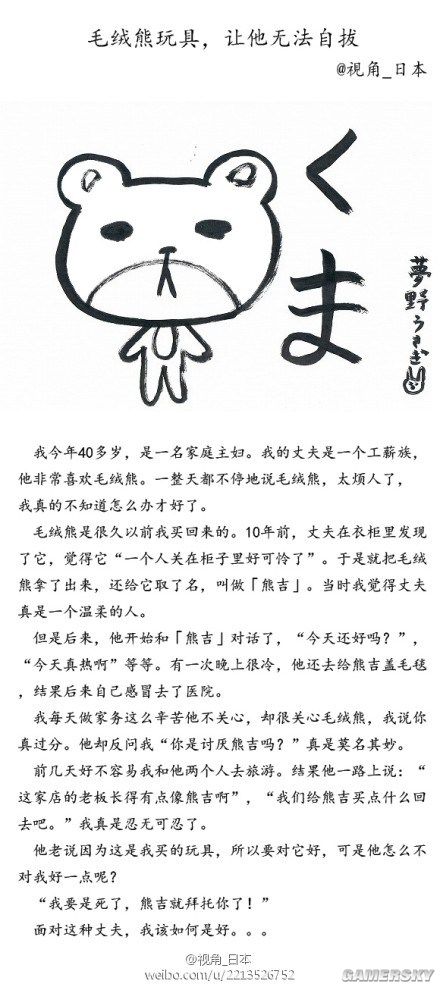 毛绒熊玩具，让他无法自拔
@視角_日本
くま
夢野うさぎ
我今年40多岁，是一名家庭主妇。我的丈夫是一个工薪族，
他非常喜欢毛绒熊。一整天都不停地说毛绒熊，太烦人了，
我真的不知道怎么办才好了。
毛绒熊是很久以前我买回来的。10年前，丈夫在衣柜里发现
了它，觉得它“一个人关在柜子里好可怜了”。于是就把毛绒
熊拿了出来，还给它取了名，叫做「熊吉」。当时我觉得丈夫
真是一个温柔的人。
但是后来，他开始和「熊吉」对话了，“今天还好吗？”，
“今天真热啊”等等。有一次晚上很冷，他还去给熊吉盖毛毯
，结果后来自己感冒去了医院。
我每天做家务这么辛苦他不关心，却很关心毛绒熊，我说你
真过分。他却反问我“你是讨厌熊吉吗？”真是莫名其妙。
前几天好不容易我和他两个人去旅游。结果他一路上说：“
这家店的老板长得有点像熊吉啊”，“我们给熊吉买点什么回
去吧。”我真是忍无可忍了。
他老说因为这是我买的玩具，所以要对它好，可是他怎么不
对我好一点呢？
“我要是死了，熊吉就拜托你了！”
面对这种丈夫，我该如何是好。。。
@视角_日本
weibo.com/u/2213526752
GAMERSKY